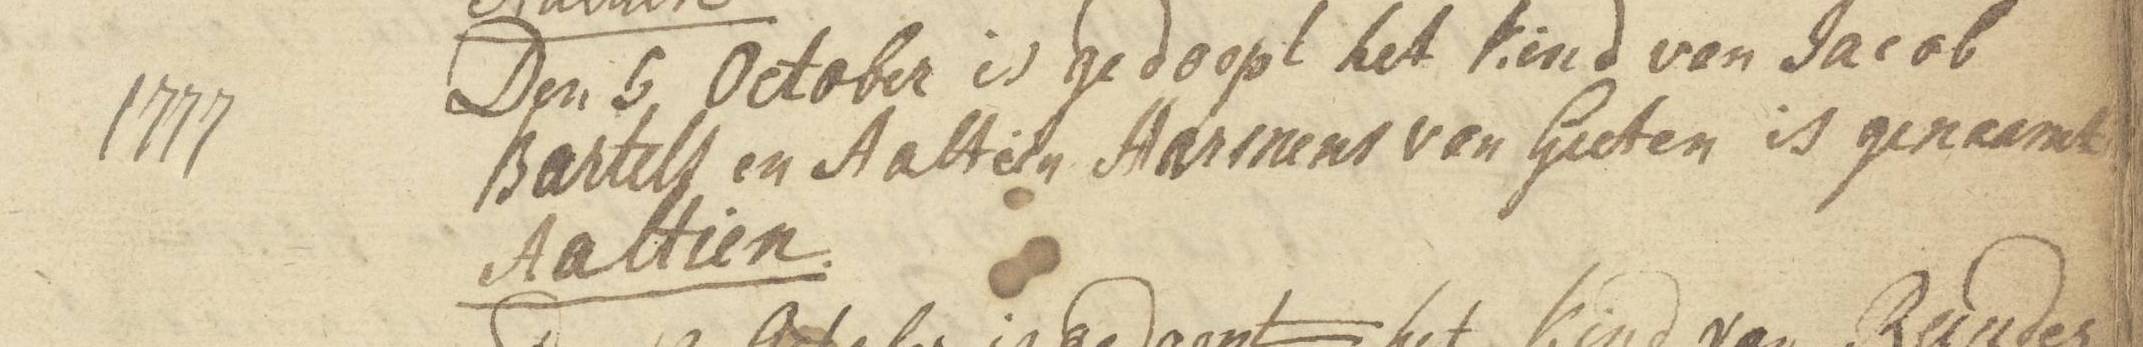 1777
Den 5 October is gedoopt het kind van Jacob
Bartels en Aaltien Harmens van Gieten is genaamt
Aaltien.
is gedoopt het kind van Reinder